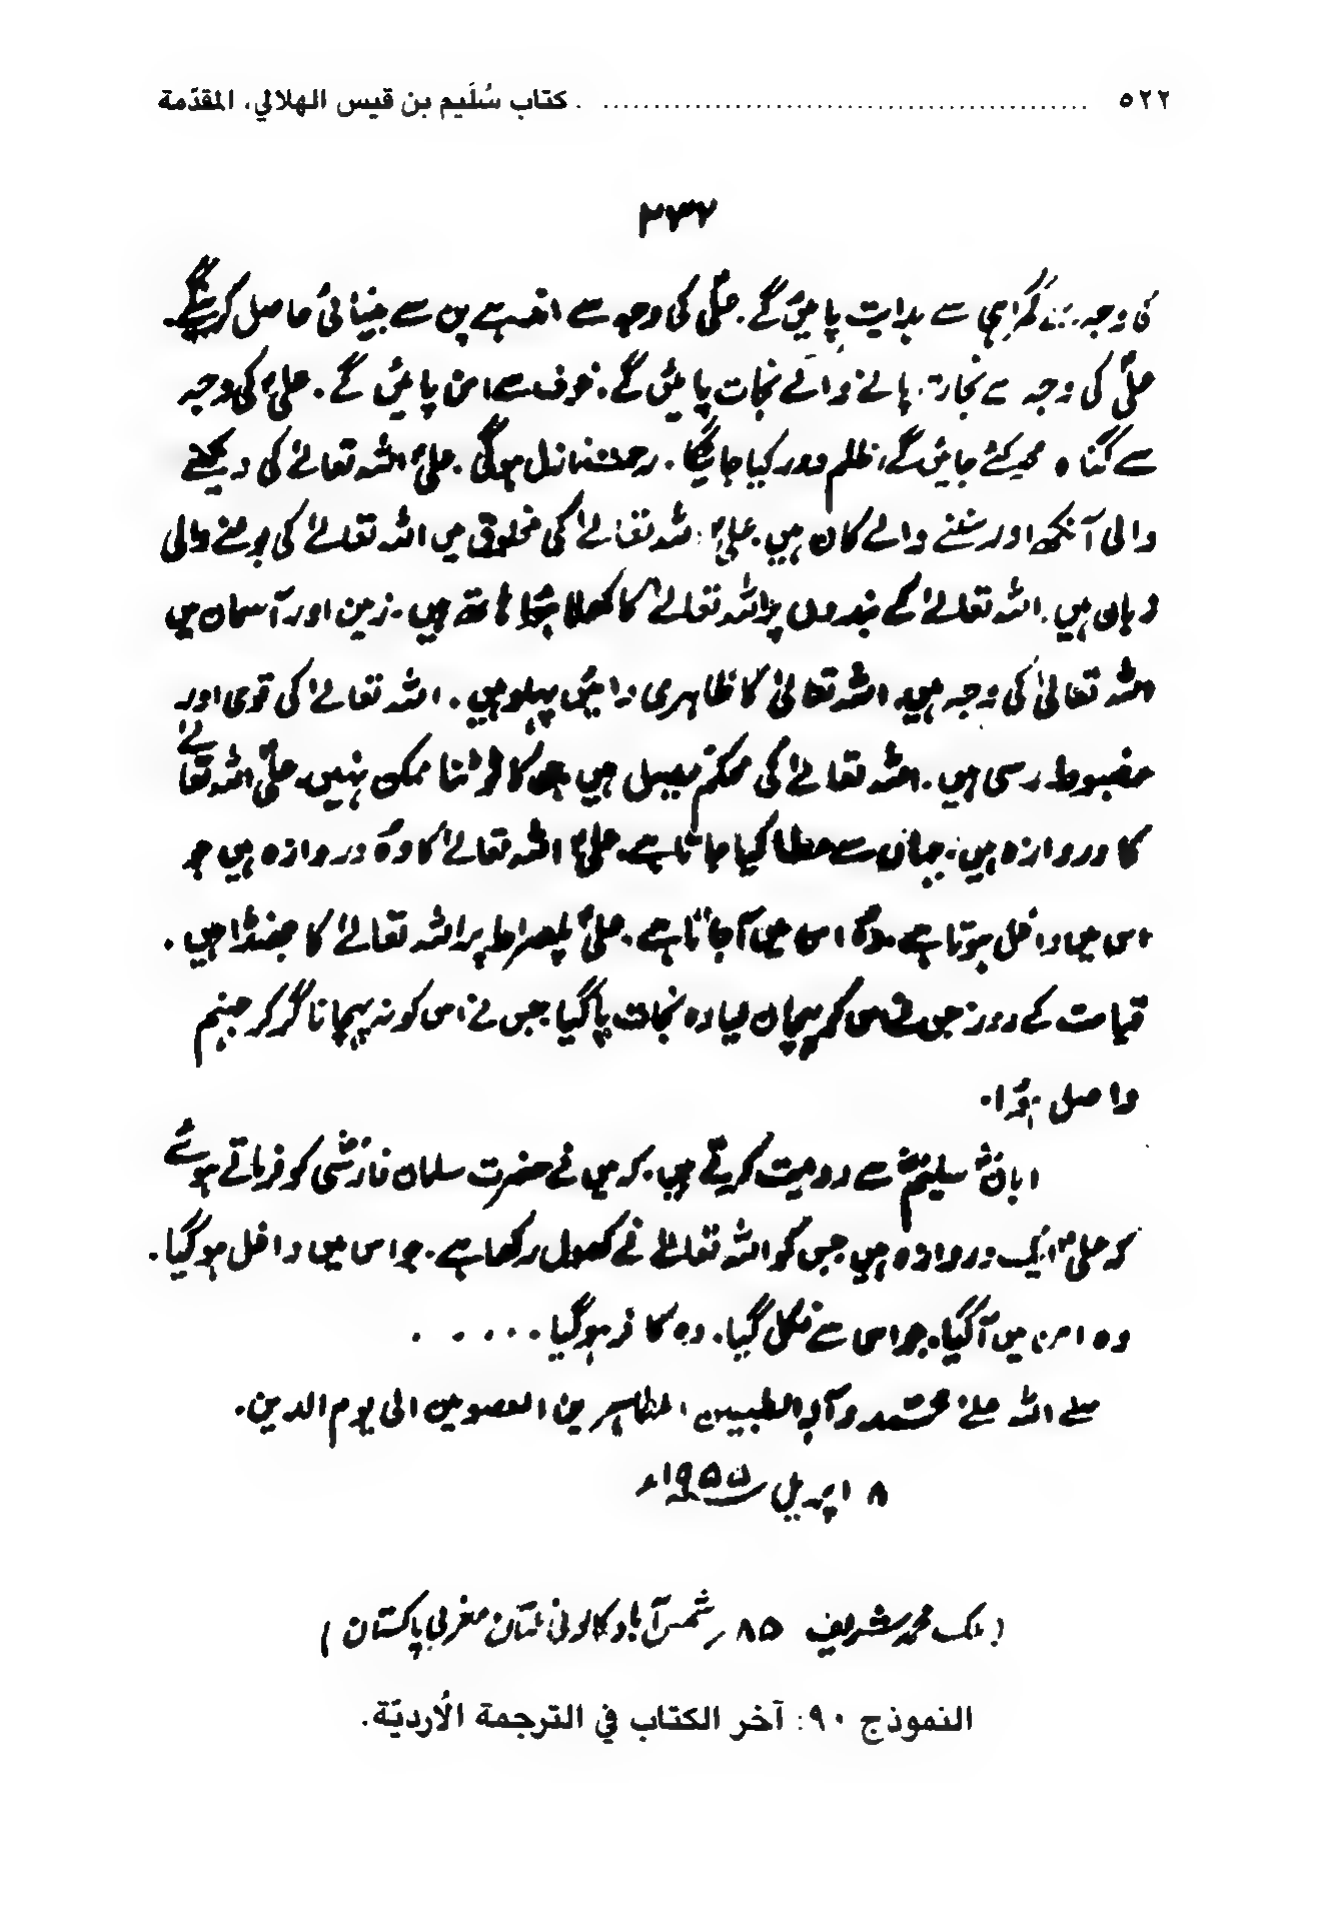 ٥٢٢ ........ كتاب سُلَيم بن قيس الهلالي، المقدّمة
٢٣٢
کی وجہ سے گمراہی سے ہدایت پائیں گے۔ علیؑ کی وجہ سے اندھے پن سے بینائی حاصل کریں گے۔
علیؑ کی وجہ سے نجات پانے والے نجات پائیں گے۔ خوف سے امن پائیں گے۔ علیؑ کی وجہ
سے گناہ محو کئے جائیں گے، ظلم دور کیا جائیگا۔ رحمت نازل ہوگی۔ علیؑ اللہ تعالےٰ کی دیکھنے
والی آنکھ اور سننے والے کان ہیں۔ علیؑ اللہ تعالےٰ کی مخلوق میں اللہ تعالےٰ کی بولنے والی
زبان ہیں۔ اللہ تعالےٰ کے بندوں پر اللہ تعالےٰ کا کھلا ہوا ہاتھ ہیں۔ زمین اور آسمان میں
اللہ تعالیٰ کی وجہ ہیں۔ اللہ تعالیٰ کا ظاہری دائیں پہلو ہیں۔ اللہ تعالےٰ کی قوی اور
مضبوط رسی ہیں۔ اللہ تعالےٰ کی محکم سبیل ہیں جس کا ٹوٹنا ممکن نہیں۔ علیؑ اللہ تعالےٰ
کا دروازہ ہیں۔ جہاں سے عطا کیا جاتا ہے۔ علیؑ اللہ تعالےٰ کا وہ دروازہ ہیں جو
اس میں داخل ہوتا ہے۔ وہ اس میں آجاتا ہے۔ علیؑ پلصراط پر اللہ تعالےٰ کا جھنڈا ہیں۔
قیامت کے روز جس نے اس کو پہچان لیا وہ نجات پا گیا جس نے اس کو نہ پہچانا گر کر جہنم
واصل ہوا۔
ابان سلیم سے روایت کرتے ہیں۔ کہ میں نے حضرت سلمان فارسی کو فرماتے ہوئے
کہ علیؑ ایک دروازہ ہیں جس کو اللہ تعالےٰ نے کھول رکھا ہے۔ جو اس میں داخل ہو گیا۔
وہ امن میں آگیا۔ جو اس سے نکل گیا۔ وہ کافر ہو گیا . . . . .
صلے اللہ علےٰ محمد وآلہ الطیبین الطاہرین المعصومین الی یوم الدین۔
٨ اپریل ١٩٥٥ء
(ملک محمد شریف ٨٥ ر شمس آباد کالونی ملتان مغربی پاکستان)
النموذج ٩٠: آخر الكتاب في الترجمة الأرديّة.